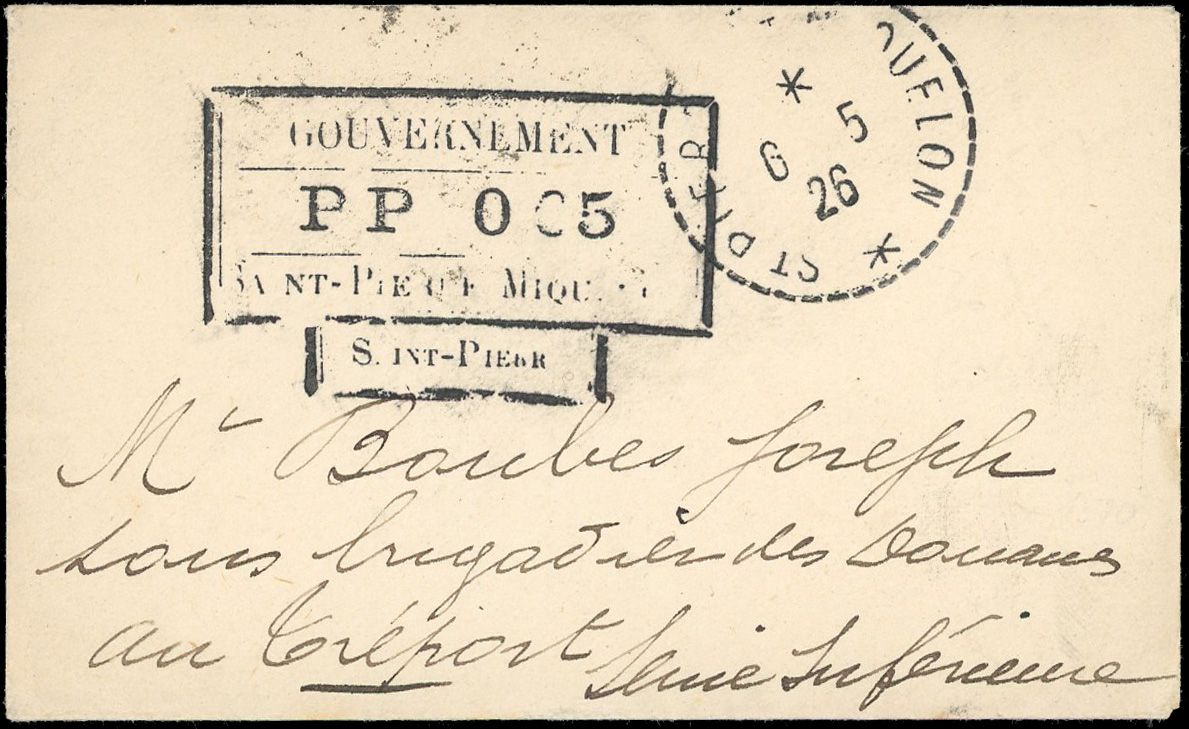 GOUVERNEMENT
PP 0 05
SAINT-PIERRE MIQU
S INT-PIERR
ST PIERR QUELON
6 5
26
Mr Boubes Joseph
sous brigadier des Douanes
au Tréport Seine Inférieure